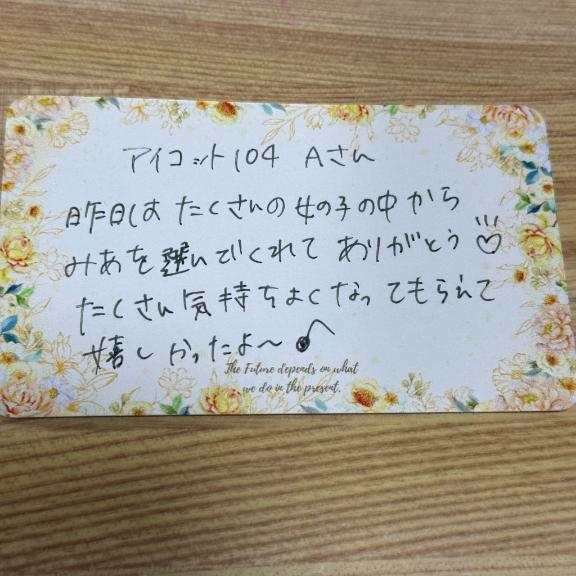 アイコット104 Aさん
昨日はたくさんの女の子の中から
みあを選んでくれてありがとう♡
たくさん気持ちよくなってもらえて
嬉しかったよ〜♪
The Future depends on what
we do in the present.